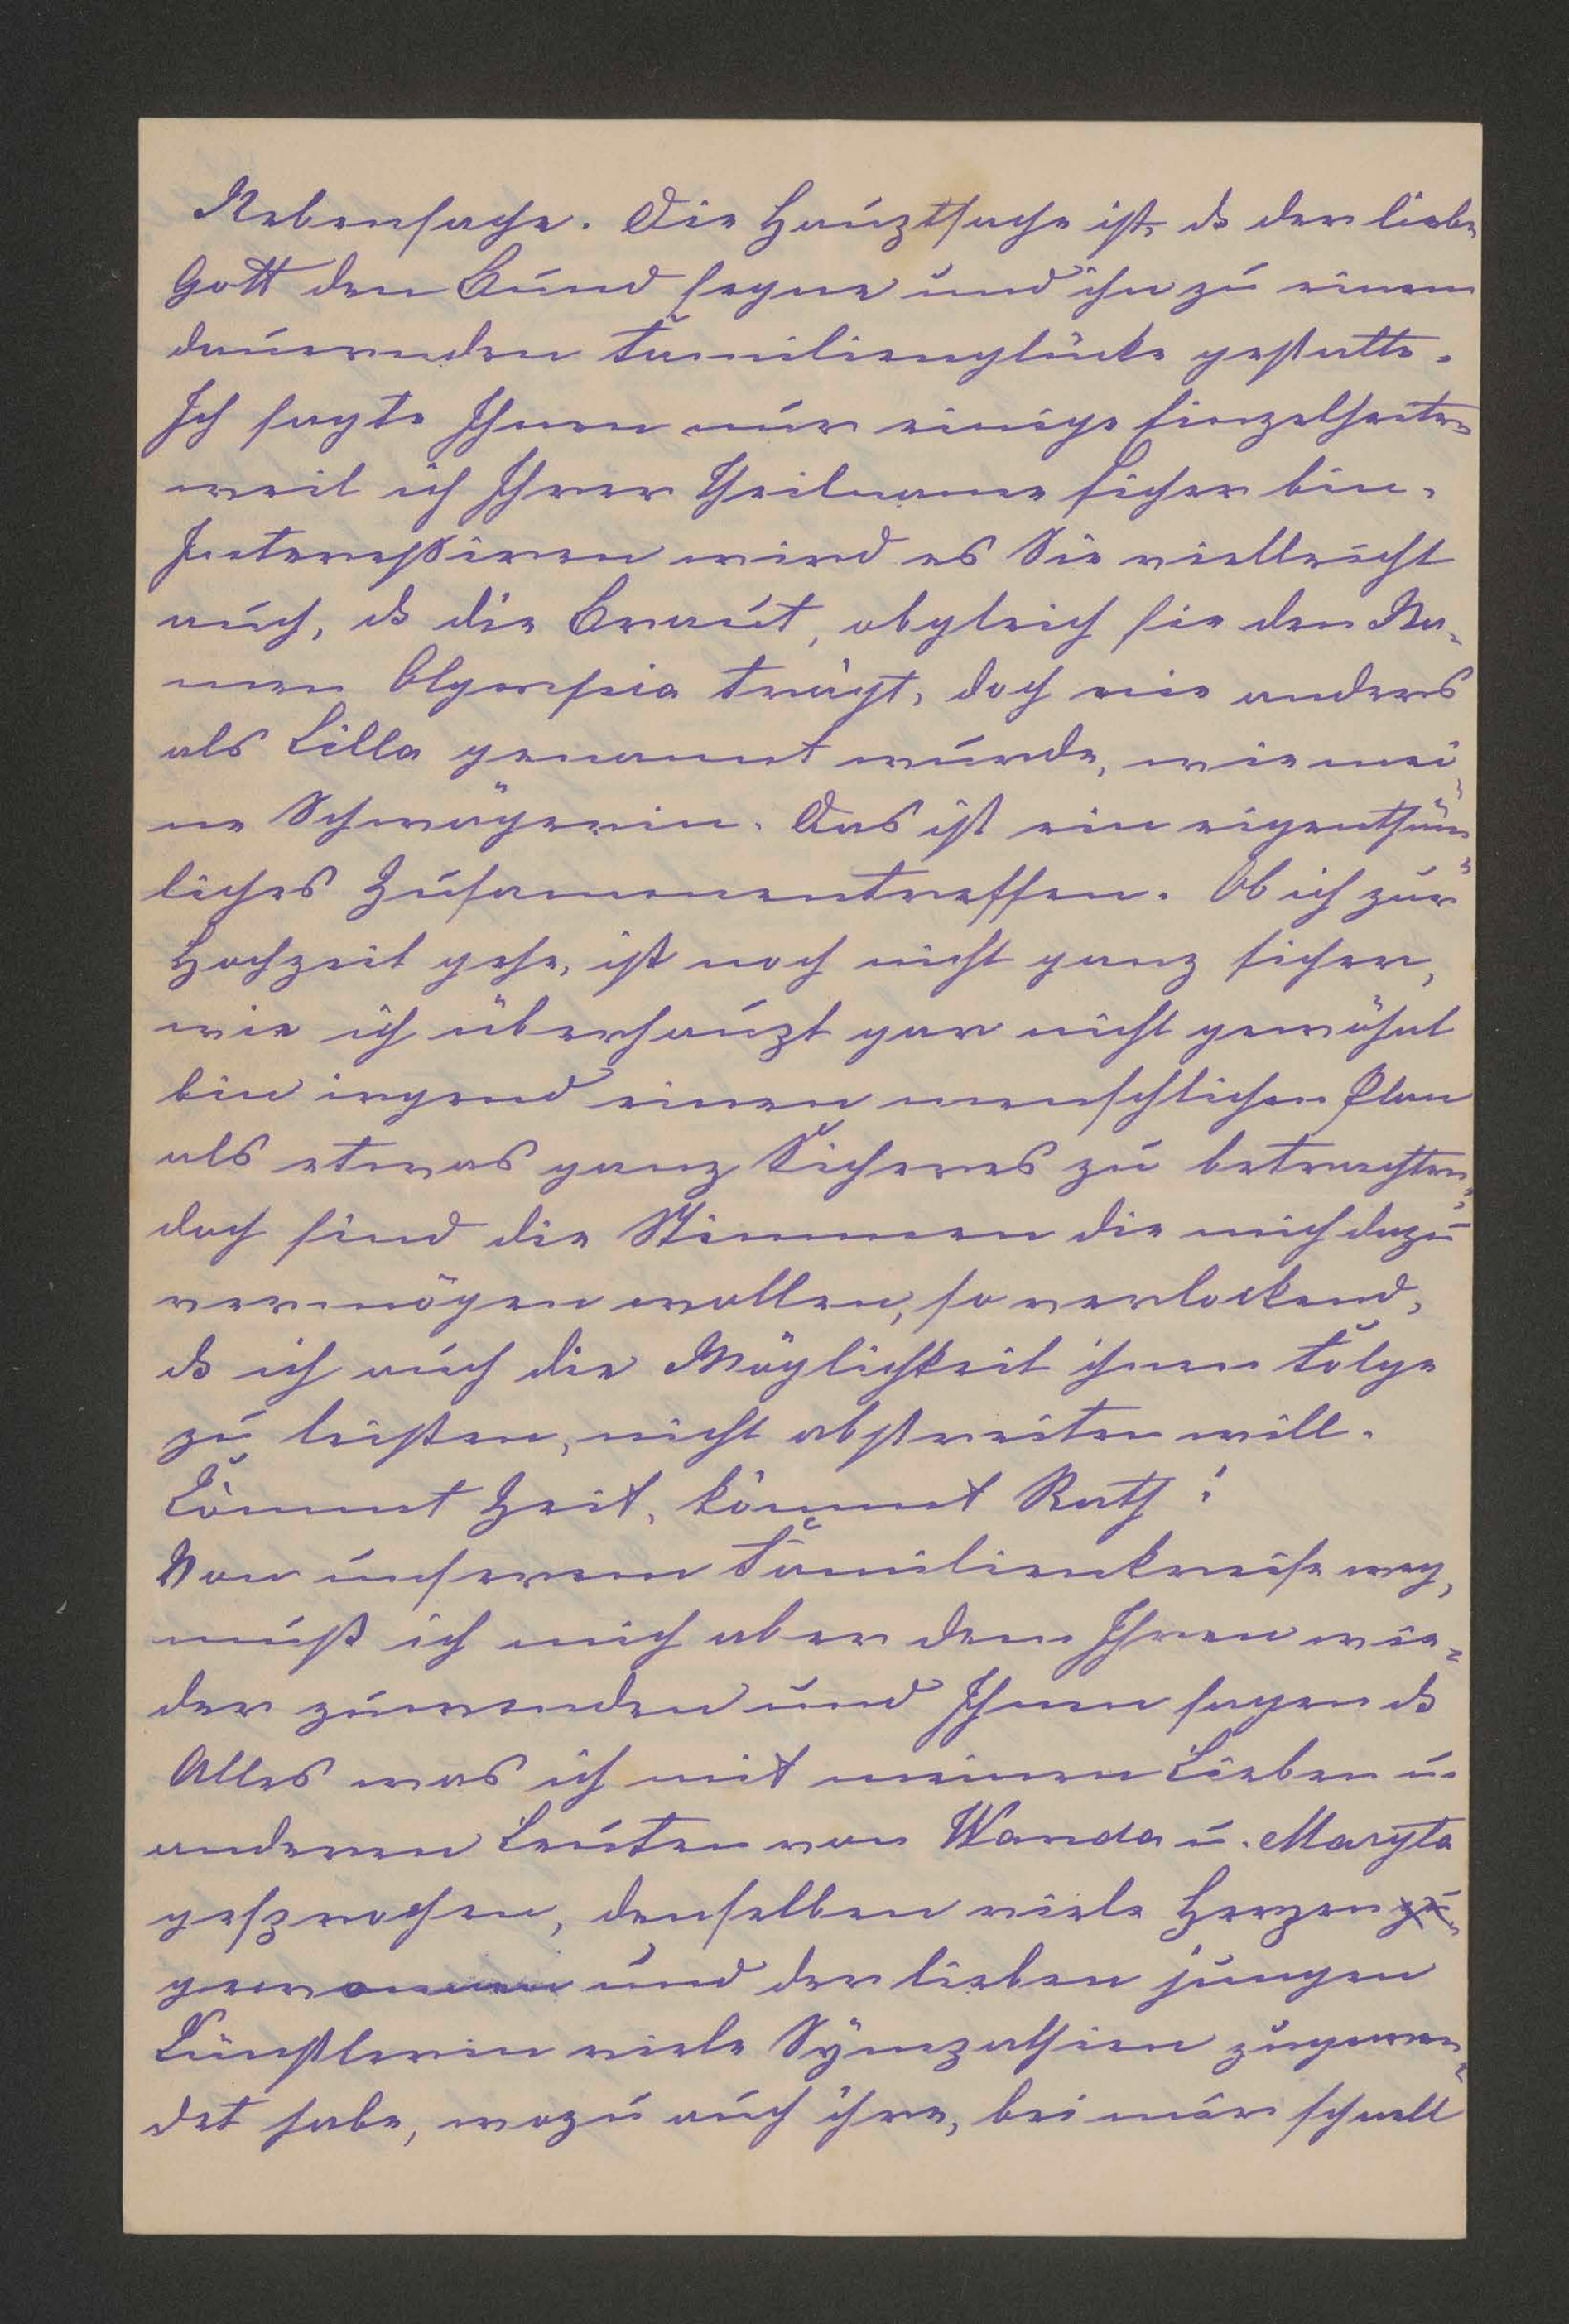 Nebensache. Die Hauptsache ist, ds der liebe
Gott den Bund segne und ihn zu einem
dauernden Familienglücke gestalte.
Ich sagte Ihnen nur einige Einzelheiten
weil ich Ihrer Theilname sicher bin.
Interessiren wird es Sie vielleicht
auch, ds die Braut, obgleich sie den Na-
men Olympia trägt, doch nie anders
als Lilla genannt wurde, wie mei-
ne Schwägerin. Das ist ein eigenthüm-
liches Zusammentreffen. Ob ich zur
Hochzeit gehe, ist noch nicht ganz sicher,
wie ich überhaupt gar nicht gewöhnt
bin irgend einen menschlichen Plan
als etwas ganz Sicheres zu betrachten;
doch sind die Stimmen die mich dazu
vermögen wollen, so verlockend,
ds ich auch die Möglichkeit ihnen Folge
zu leisten, nicht abstreiten will.
Kommt Zeit, kommt Rath!
Von unserem Familienkreise weg,
muß ich mich aber dem Ihren wie-
der zuwenden und Ihnen sagen ds
Alles was ich mit meinen Lieben u.
anderen Leuten von Wanda u. Maryla
gesprochen, denselben viele Herzen
gewonnen und der lieben jungen
Künstlerin viele Sympathien zugewen-
det habe, wozu auch ihre, bei mir schnell